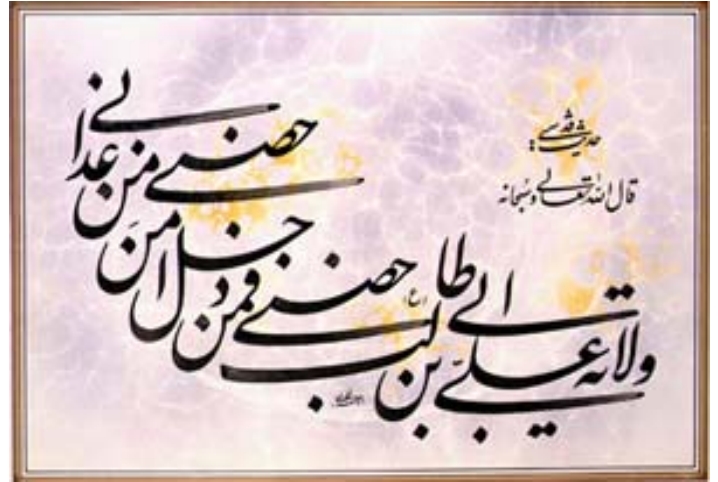 حدیث قدسی
قال الله تعالی و سبحانه
ولایة علی بن ابی طالب (ع) حصنی
فمن دخل حصنی امن من عذابی